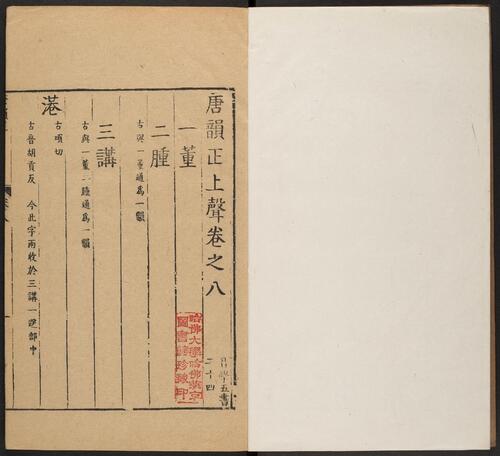 唐韻正上聲卷之八
音學五書
二十四
哈佛大學哈佛燕京
圖書館珍藏印
一董
二腫
古與一董通爲一韻
三講
古與一董二腫通爲一韻
港
古項切
古音胡貢反 今此字兩收於三講一送部中